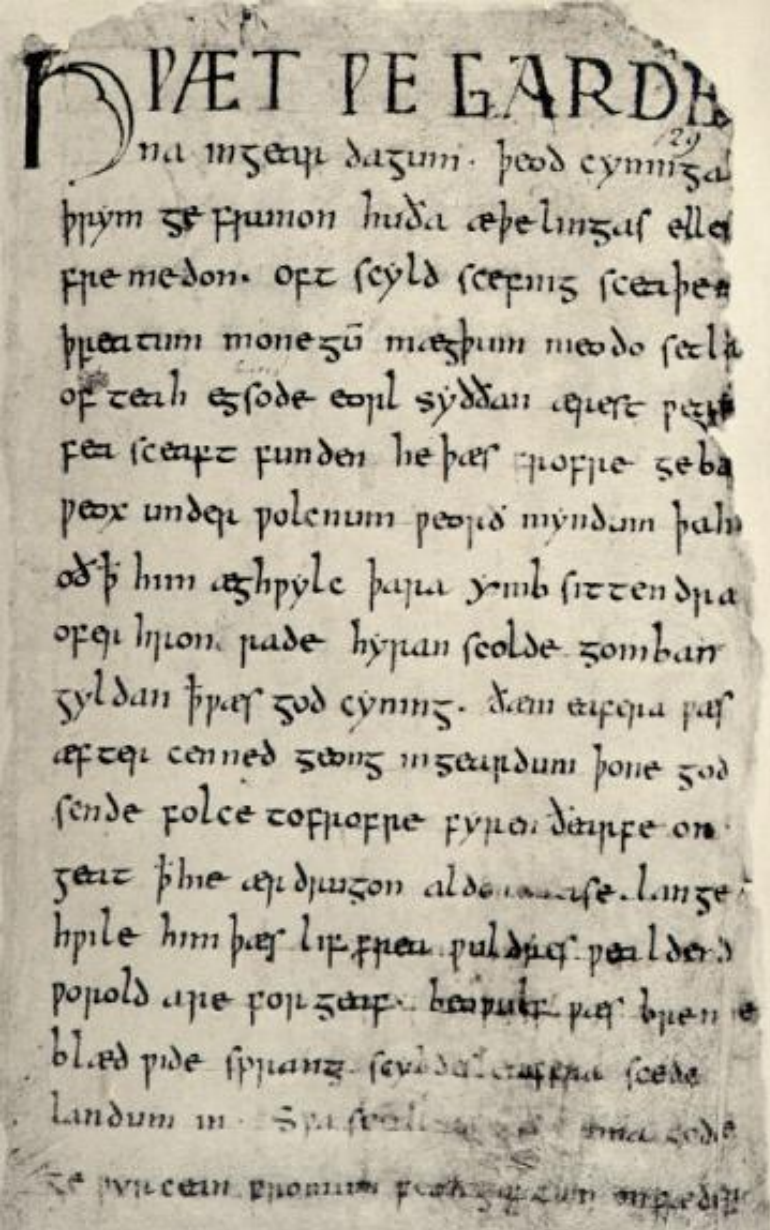 HǷÆT ǷE GARDE
na ingear dagum. þeod cyninga
þrym ge frunon huða æþelingas elle
fremedon. oft scyld scefing sceaþen
þreatum monegū mægþum meodo setla
of teah egsode eorl syððan ærest ƿear
fea sceaft funden he þæs frofre geba
ƿeox under ƿolcnum ƿeorð myndum þah
oð ꝥ him æghƿylc þara ymb sittendra
ofer hron rade hyran scolde gomban
gyldan ꝥ ƿæs god cyning. ðæm eafera ƿæs
æfter cenned geong ingeardum þone god
sende folce tofrofre fyren ðearfe on
geat ꝥ hie ær drugon aldor ase. lange
hƿile him þæs lif frea ƿuldres ƿealdend
ƿorold are forgeaf. beoƿulf ƿæs breme
blæd ƿide sprang scyldes eafera scede
landum in. Sƿa sceal ma gode
ge ƿyrcean fromum feoh giftum